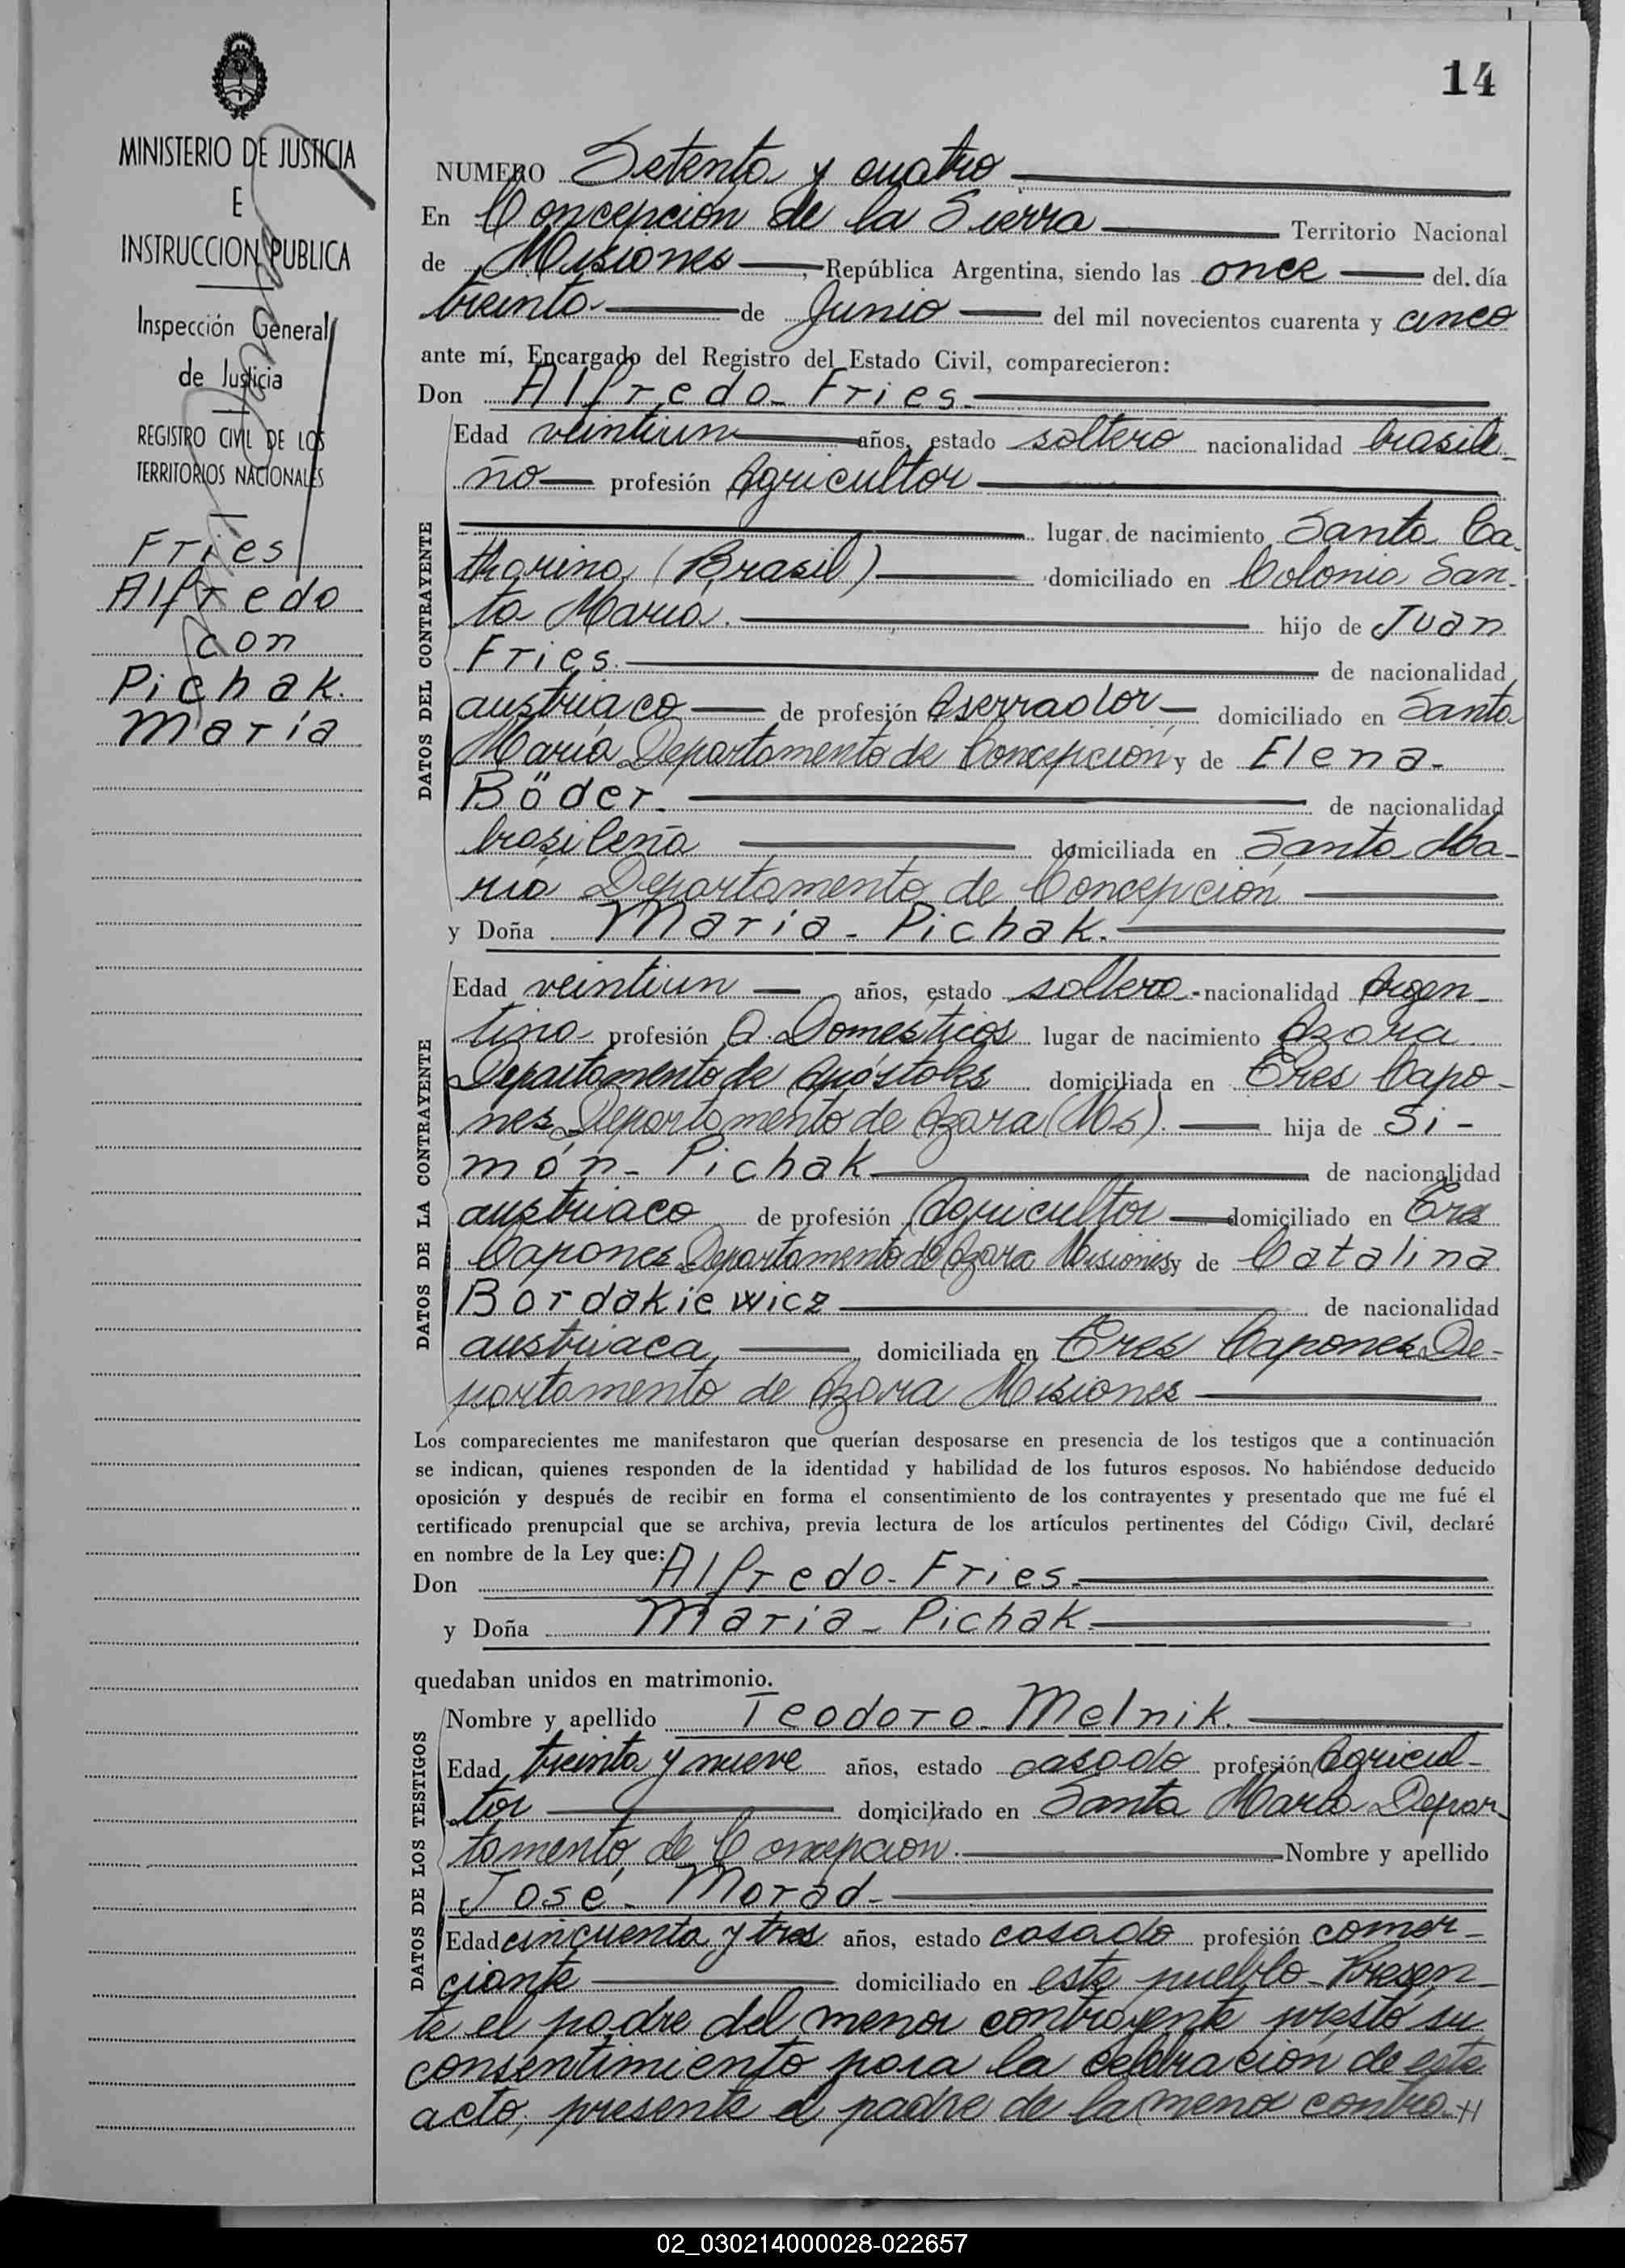 14
MINISTERIO DE JUSTICIA
E
INSTRUCCION PUBLICA
Inspección General
de Justicia
REGISTRO CIVIL DE LOS
TERRITORIOS NACIONALES
Fries
Alfredo
con
Pichak.
María
NUMERO Setenta y cuatro
En Concepción de la Sierra Territorio Nacional
de Misiones, República Argentina, siendo las once del día
treinta de Junio del mil novecientos cuarenta y cinco
ante mí, Encargado del Registro del Estado Civil, comparecieron:
Don Alfredo Fries.
DATOS DEL CONTRAYENTE
Edad veintiun años, estado soltero nacionalidad brasile-
ño profesión Agricultor
lugar de nacimiento Santa Ca-
tharina (Brasil) domiciliado en Colonia San-
ta María. hijo de Juan
Fries. de nacionalidad
austriaco de profesión Aserrador domiciliado en Santa
María Departamento de Concepción y de Elena
Böder. de nacionalidad
brasileña domiciliada en Santa Ma-
ria Departamento de Concepción
y Doña María Pichak.
DATOS DE LA CONTRAYENTE
Edad veintiun años, estado soltera nacionalidad Argen-
tina profesión Q. Domésticos lugar de nacimiento Azara
Departamento de Apóstoles domiciliada en Tres Capo-
nes Departamento de Azara (Mos). hija de Si-
món Pichak de nacionalidad
austriaco de profesión Agricultor domiciliado en Tres
Capones Departamento de Azara Misiones y de Catalina
Bordakiewicz de nacionalidad
austriaca domiciliada en Tres Capones De-
partamento de Azara Misiones
Los comparecientes me manifestaron que querían desposarse en presencia de los testigos que a continuación
se indican, quienes responden de la identidad y habilidad de los futuros esposos. No habiéndose deducido
oposición y después de recibir en forma el consentimiento de los contrayentes y presentado que me fué el
certificado prenupcial que se archiva, previa lectura de los artículos pertinentes del Código Civil, declaré
en nombre de la Ley que:
Don Alfredo Fries.
y Doña María Pichak.
quedaban unidos en matrimonio.
DATOS DE LOS TESTIGOS
Nombre y apellido Teodoro Melnik.
Edad treinta y nueve años, estado casado profesión Agricul-
tor domiciliado en Santa María Depar-
tamento de Concepción. Nombre y apellido
José Morad.
Edad cincuenta y tres años, estado casado profesión comer-
ciante domiciliado en este pueblo. Presen-
te el padre del menor contrayente prestó su
consentimiento para la celebración de este
acto, presente el padre de la menor contra-
02_030214000028-022657